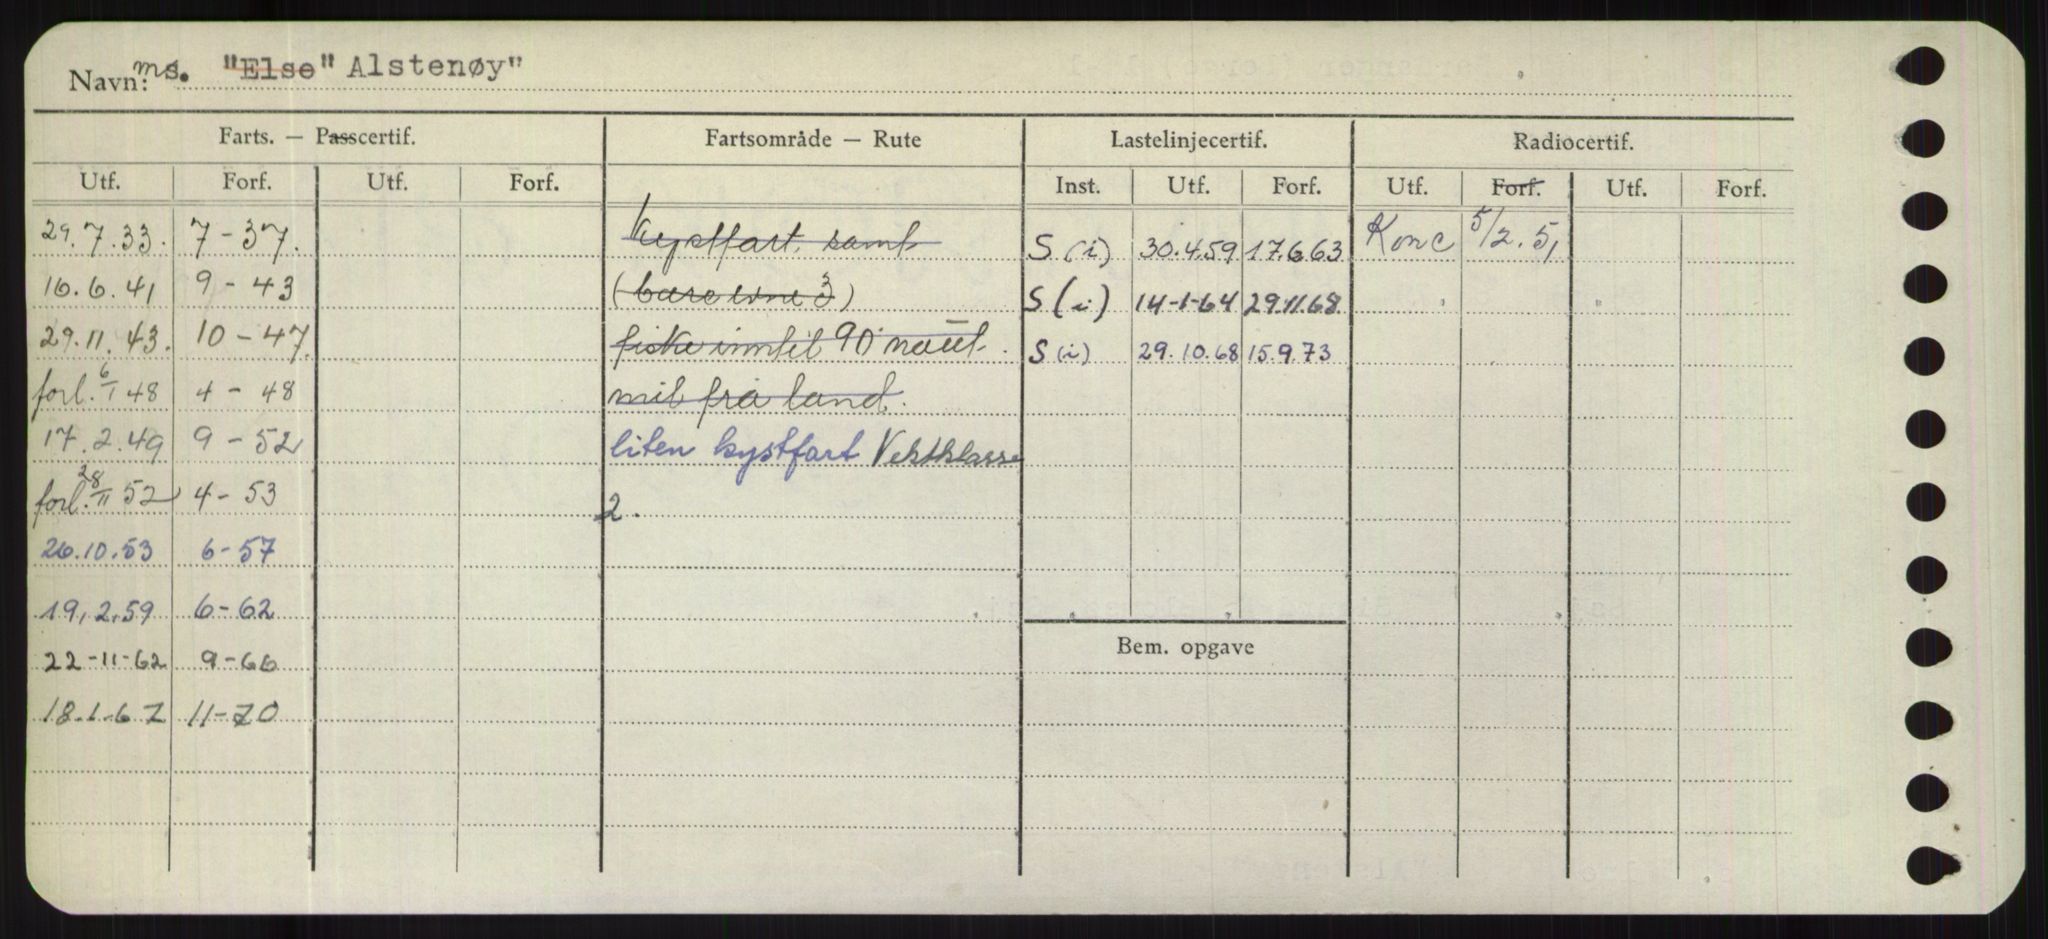 Navn: ms. "Else" Alstenøy"
Farts. — Passcertif. Fartsområde — Rute Lastelinjecertif. Radiocertif.
Utf. Forf. Utf. Forf. Inst. Utf. Forf. Utf. Forf. Utf. Forf.
29.7.33. 7-37. Kystfart samt S (i) 30.4.59 17.6.63 Konc 5/2.51
16.6.41 9-43 ( 3) S (i) 14-1-64 29.11.68
29.11.43. 10-47. fiske inntil 90 naut. S (i) 29.10.68 15.9.73
forl. 6/1 48 4-48 mil fra land.
17.2.49 9-52 liten kystfart Vektklasse
forl. 28/11 52 4-53 2.
26.10.53 6-57
19.2.59 6-62
22-11-62 9-66
Bem. opgave
18.1.67 11-70